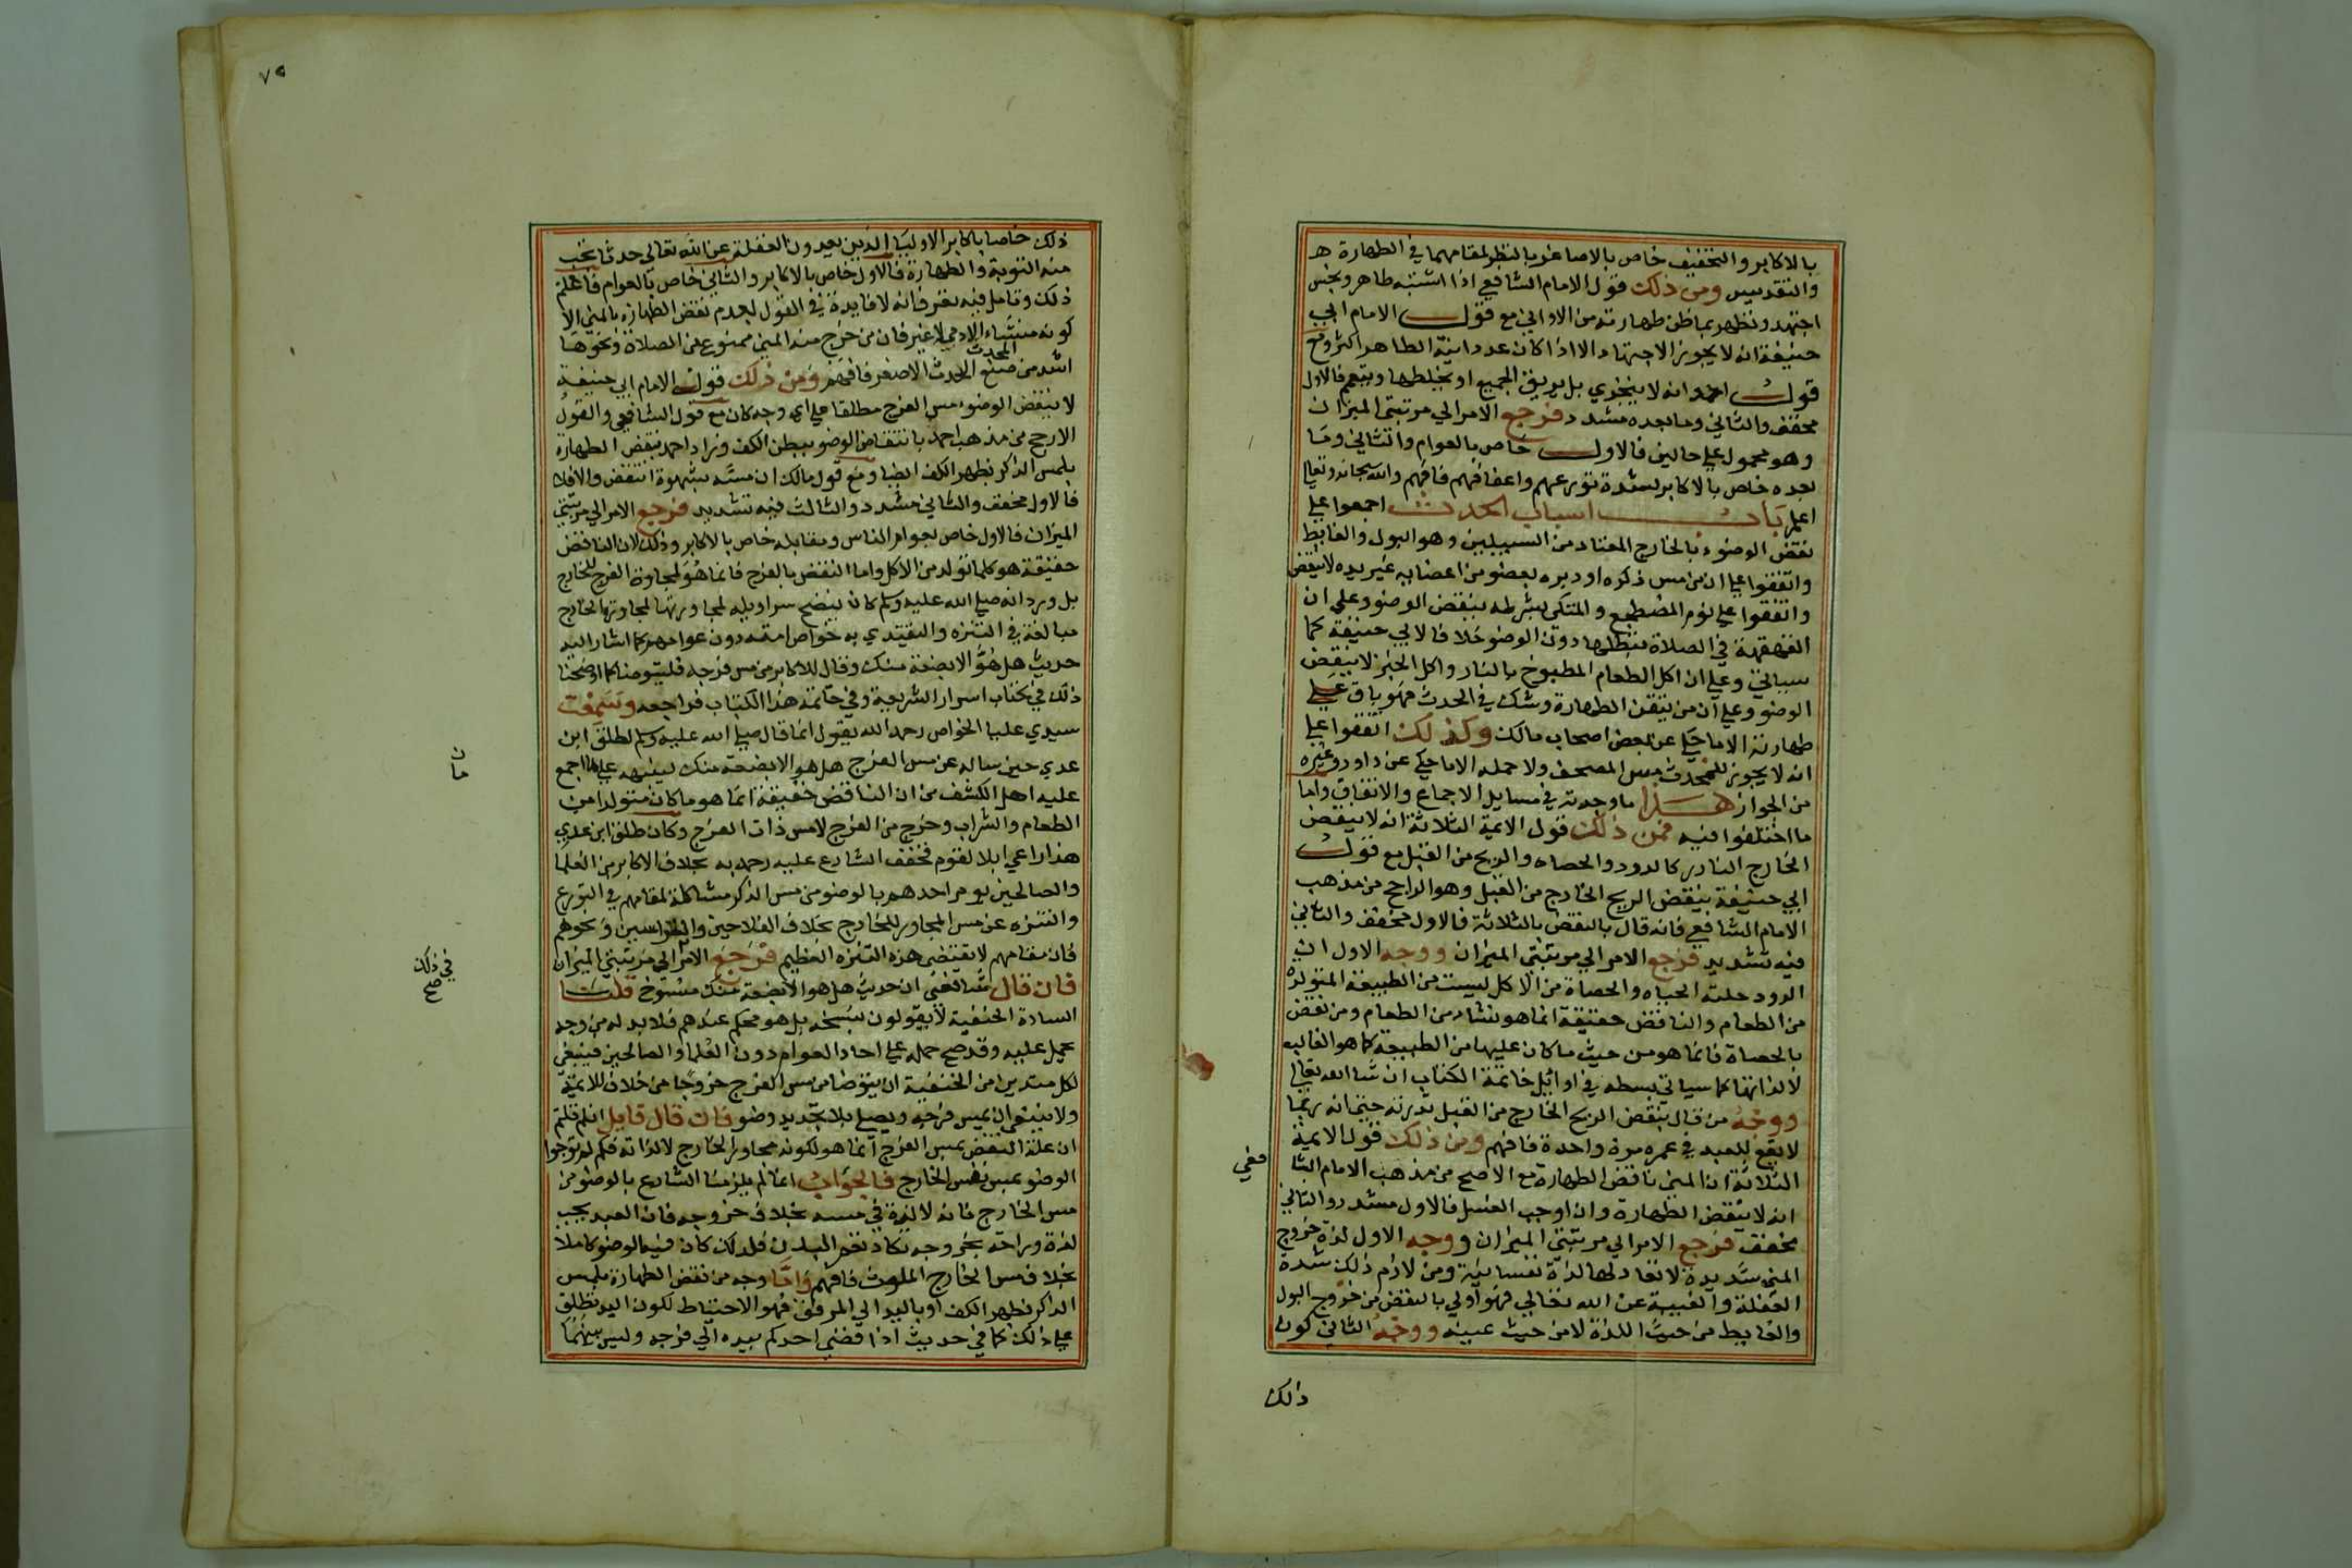 بالاكابر والتخفيف خاص بالاصاغر بالنظر لمقامهما في الطهارة هـ
والتقديس ومن ذلك قول الامام الشافعي اذا اشتبه طاهر ونجس
اجتهد وتطهر بما ظن طهارته من الاواني مع قول الامام ابي
حنيفة انه لا يجوز الاجتهاد الا اذا كان عدد انية الطاهر اكثر ومع
قول احمد انه لا يتحري بل يريق الجميع او يخلطها ويتيمم فالاول
مخفف والثاني وما بعده مشدد فرجع الامر الي مرتبتي الميزان
وهو محمول علي حالين فالاول خاص بالعوام والثاني وما
بعده خاص بالاكابر لشدة تورعهم واعفافهم فافهم والله سبحانه وتعالي
اعلم باب اسباب الحدث اجمعوا علي
نقض الوضوء بالخارج المعتاد من السبيلين وهو البول والغايط
واتفقوا علي ان من مس ذكره او دبره بعضو من اعضايه غير يده لا ينقض
واتفقوا علي نوم المضطجع والمتكي بشرطه ينقض الوضو وعلي ان
القهقهة في الصلاة تبطلها دون الوضو خلافا لابي حنيفة كما
سياتي وعلي ان اكل الطعام المطبوخ بالنار واكل الخبز لا ينقض
الوضو وعلي ان من تيقن الطهارة وشك في الحدث فهو باق علي
طهارته الا ما حكي عن بعض اصحاب مالك وكذلك اتفقوا علي
انه لا يجوز للمحدث مس المصحف ولا حمله الا ما حكي عن داود وغيره
من الجواز هذا ما وجدته في مسايل الاجماع والاتفاق واما
ما اختلفوا فيه فمن ذلك قول الايمة الثلاثة انه لا ينقض
الخارج النادر كالدود والحصاه والريح من القبل مع قول
ابي حنيفة ينقض الريح الخارج من القبل وهو الراجح من مذهب
الامام الشافعي فانه قال بالنقض بالثلاثة فالاول مخفف والثاني
فيه تشديد فرجع الامر الي مرتبتي الميزان ووجه الاول ان
الدود حلته الحياه والحصاة من الاكل ليست من الطبيعة المتولدة
من الطعام والناقض حقيقة انما هو ننشا من الطعام ومن نقض
بالحصاة فانما هو من حيث ما كان عليها من الطبيعة كما هو الغالب
لا لذاتها كما سياتي بسطه في اوائل خاتمة الكتاب ان شا الله تعالي
ووجه من قال بنقض الريح الخارج من القبل ندرته حتي انه ربما
لا يقع للعبد في عمره مرة واحدة فافهم ومن ذلك قول الايمة
الثلاثة ان المني ناقض الطهارة مع الاصح من مذهب الامام الشا
فعي
انه لا ينقض الطهارة وان اوجب الغسل فالاول مشدد والثاني
مخفف فرجع الامر الي مرتبتي الميزان ووجه الاول لذة خروج
المني شديدة لا تعادلها لذة نفسانية ومن لازم ذلك شدة
الغفلة والغيبة عن الله تعالي فهو اولي بالنقض من خروج البول
والغايط من حيث اللذة لا من حيث عينه ووجه الثاني كون
ذلك
٧٥
ذلك خاصا باكابر الاوليا الذين يعدون الغفلة عن الله تعالي حدثا يجب
منه التوبة والطهارة فالاول خاص بالاكابر والثاني خاص بالعوام فاعلم
ذلك وتامل فيه تعرف انه لا فايدة في القول بعدم نقض الطهارة بالمني الا
كونه منشاء الادمي لا غير فان من خرج منه المني ممنوع من الصلاة ونحوها
اشد من منع المحدث الحدث الاصغر فافهم ومن ذلك قول الامام ابي حنيفة
لا ينقض الوضوء مس الفرج مطلقا علي اي وجه كان مع قول الشافعي والقول
الارجح من مذهب احمد بانتقاض الوضو ببطن الكف وزاد احمد بنقض الطهارة
بلمس الذكر بظهر الكف ايضا ومع قول مالك ان مسه بشهوة انتقض والا فلا
فالاول مخفف والثاني مشدد والثالث فيه تشديد فرجع الامر الي مرتبتي
الميزان فالاول خاص بعوام الناس ومقابله خاص بالاكابر وذلك لان الناقض
حقيقة هو كلما تولد من الاكل واما النقض بالفرج فانما هو لمجاورة الفرج للخارج
بل ورد انه صلي الله عليه وسلم كان ينضح سراويله لمجاورتها لمجاورتها الخارج
مبالغة في التنزه واليقتدي به خواص امته دون عوامهم كما اشار اليه
حديث هل هو الا بضعة منك وقال للاكابر من مس فرجه فليتوضا كما اوضحنا
ذلك في كتاب اسرار الشريعة وفي خاتمة هذا الكتاب فراجعه وسمعت
سيدي عليا الخواص رحمه الله يقول انما قال صلي الله عليه وسلم لطلق ابن
عدي حين ساله عن مس الفرج هل هو الا بضعة منك لينبهه علي ما اجمع
عليه اهل الكشف من ان الناقض حقيقة انما هو ما كان متولدا من
الطعام والشراب وخرج من الفرج لا مس ذات الفرج وكان طلق ابن عدي
هذا راعي ابلا لقوم فخفف الشارع عليه رحمه به بخلاف الاكابر من العلما
والصالحين يومر احدهم بالوضو من مس الذكر مشاكلة لمقامهم في التورع
والتنزه عن مس المجاور للخارج بخلاف الفلاحين والتراسين ونحوهم
فان مقامهم لا يقتضي هذه التنزه العظيم فرجع الامر الي مرتبتي الميزان
فان قال شافعي ان حديث هل هو الا بضعة منك منسوخ قلنا
السادة الحنفية لا يقولون بنسخه بل هو محكم عندهم فلا بد له من وجه
يحمل عليه وقد صح حمله علي احاد العوام دون العلما والصالحين فينبغي
لكل متدين من الحنفية ان يتوضا من مس الفرج خروجا من خلاف للايمة
ولا ينبغي ان يمس فرجه ويصلي بلا تجديد وضو فان قال قايل انكم قلتم
ان علة النقض بمس الفرج انما هو لكونه مجاور الخارج لا لذاته فلم لم توجبوا
الوضو بمس نفس الخارج فالجواب انما لم يلزمنا الشارع بالوضو من
مس الخارج فانه لا لذة في مسه بخلاف خروجه فان العبد يجب
لذة وراحة بخروجه تكاد تعم البدن فلذلك كان فيه الوضو كاملا
بخلاف مس الخارج الملوث فافهم واما وجه من نقض الطهارة بلمس
الذكر بظهر الكف او باليد الي المرفق فهو الاحتياط لكون اليد تطلق
علي ذلك كما في حديث اذا افضي احدكم بيده الي فرجه وليس بينهما
ن
ما
في ذلك
صح